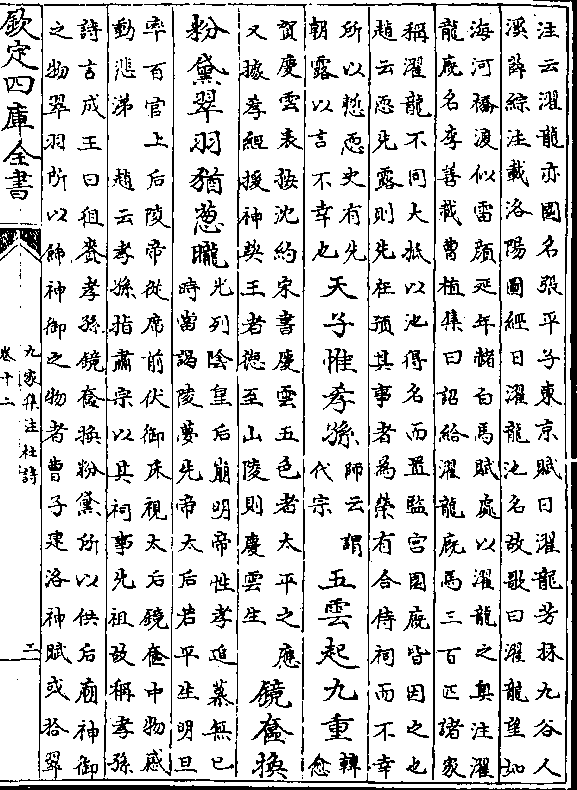 注云濯龍亦園名張平子東京賦曰濯龍芳林九谷人
溪薛綜注載洛陽圖經曰濯龍池名故歌曰濯龍望如
海河橋渡似雷顔延年赭白馬賦處以濯龍之奥注濯
龍廐名李善載曹植集曰詔給濯龍廐馬三百匹諸家
稱濯龍不同大抵以池得名而置監宫園廐皆因之也
趙云恐先露則先在預其事者為榮有合侍祠而不幸
所以愁恐史有先
朝露以言不幸也
天子惟孝孫
師云謂
代宗
五雲起九重
韓
愈
賀慶雲表按沈約宋書慶雲五色者太平之應
又據孝經援神契王者德至山陵則慶雲生
鏡奩換
粉黛翠羽猶葱朧
光列陰皇后崩明帝性孝追慕無已
時當謁陵夢先帝太后若平生明旦
率百官上后陵帝從席前伏御床視太后鏡奩中物感
動悲涕 趙云孝孫指肅宗以其祠事先祖故稱孝孫
詩言成王曰徂賚孝孫鏡奩換粉黛所以供后廟神御
之物翠羽所以飾神御之物者曹子建洛神賦或拾翠
欽定四庫全書
九家集注杜詩
卷十二
三